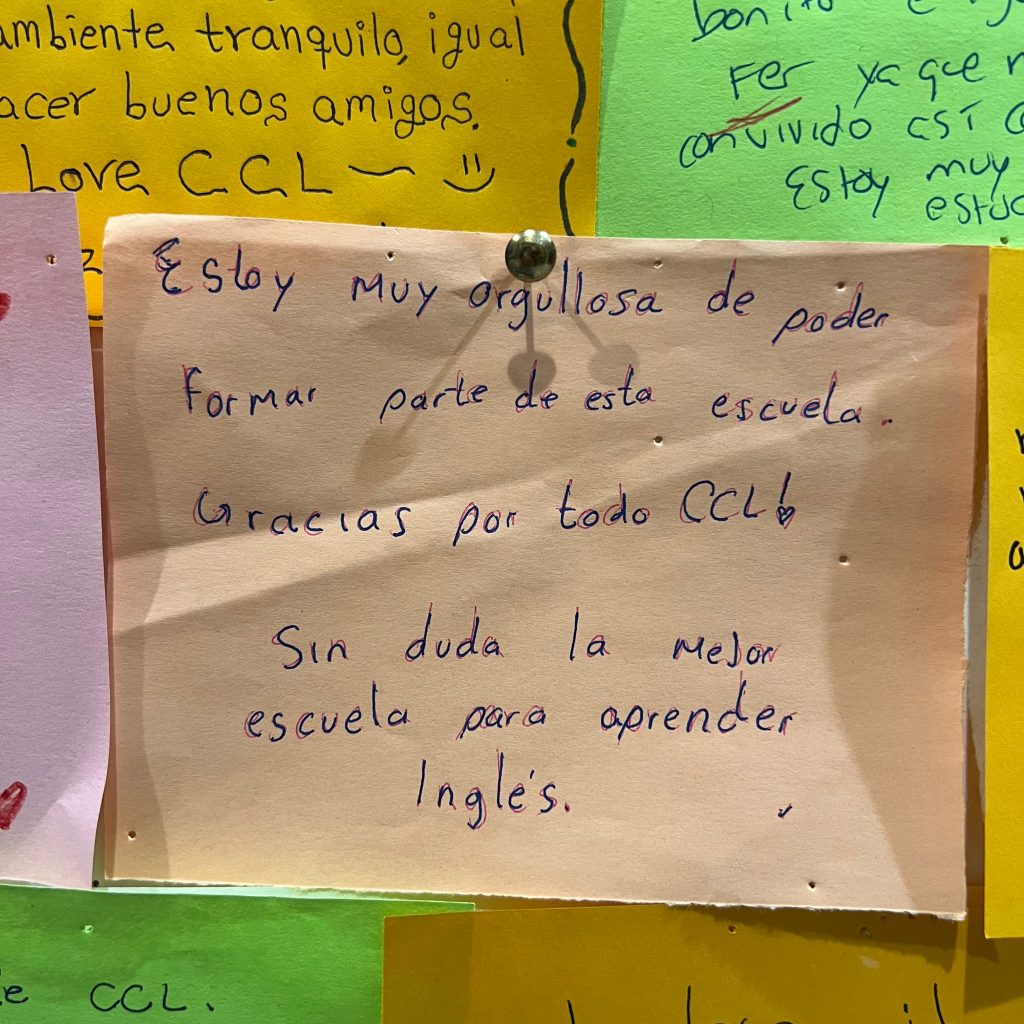 ambiente tranquilo, igual
acer buenos amigos.
Love CCL
bonito
Fer ya que
convivido así
Estoy muy
Estoy muy orgullosa de poder
Formar parte de esta escuela.
Gracias por todo CCL!
Sin duda la mejor
escuela para aprender
Inglés.
CCL.